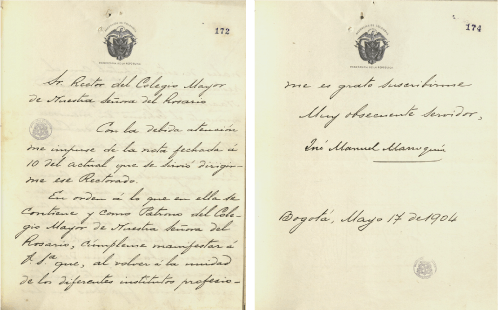 172
Sr. Rector del Colegio Mayor
de Nuestra Señora del Rosario
Con la debida atención
me impuse de la nota fechada á
10 del actual que se sirvió dirigir-
me ese Rectorado.
En orden á lo que en ella se
contiene y como Patrono del Cole-
gio Mayor de Nuestra Señora del
Rosario, cúmpleme manifestar á
S. Sª que, al volver á la unidad
de los diferentes institutos profesio-
174
me es grato suscribirme
Muy obsecuente servidor,
José Manuel Marroquín
Bogotá, Mayo 17 de 1904